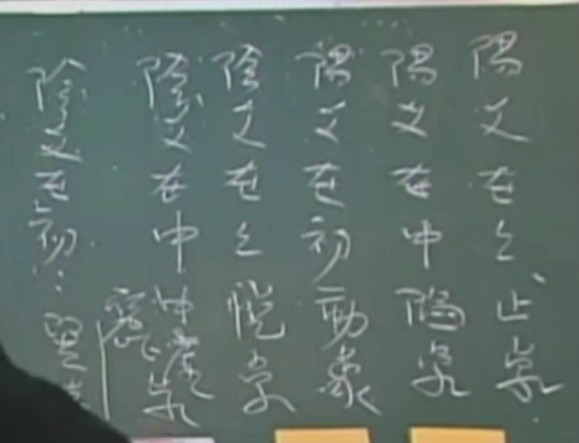 陽爻在上、止象
陽爻在中陷象
陽爻在初動象
陰爻在上悅象
陰爻在中中虛象
陰爻在初：巽